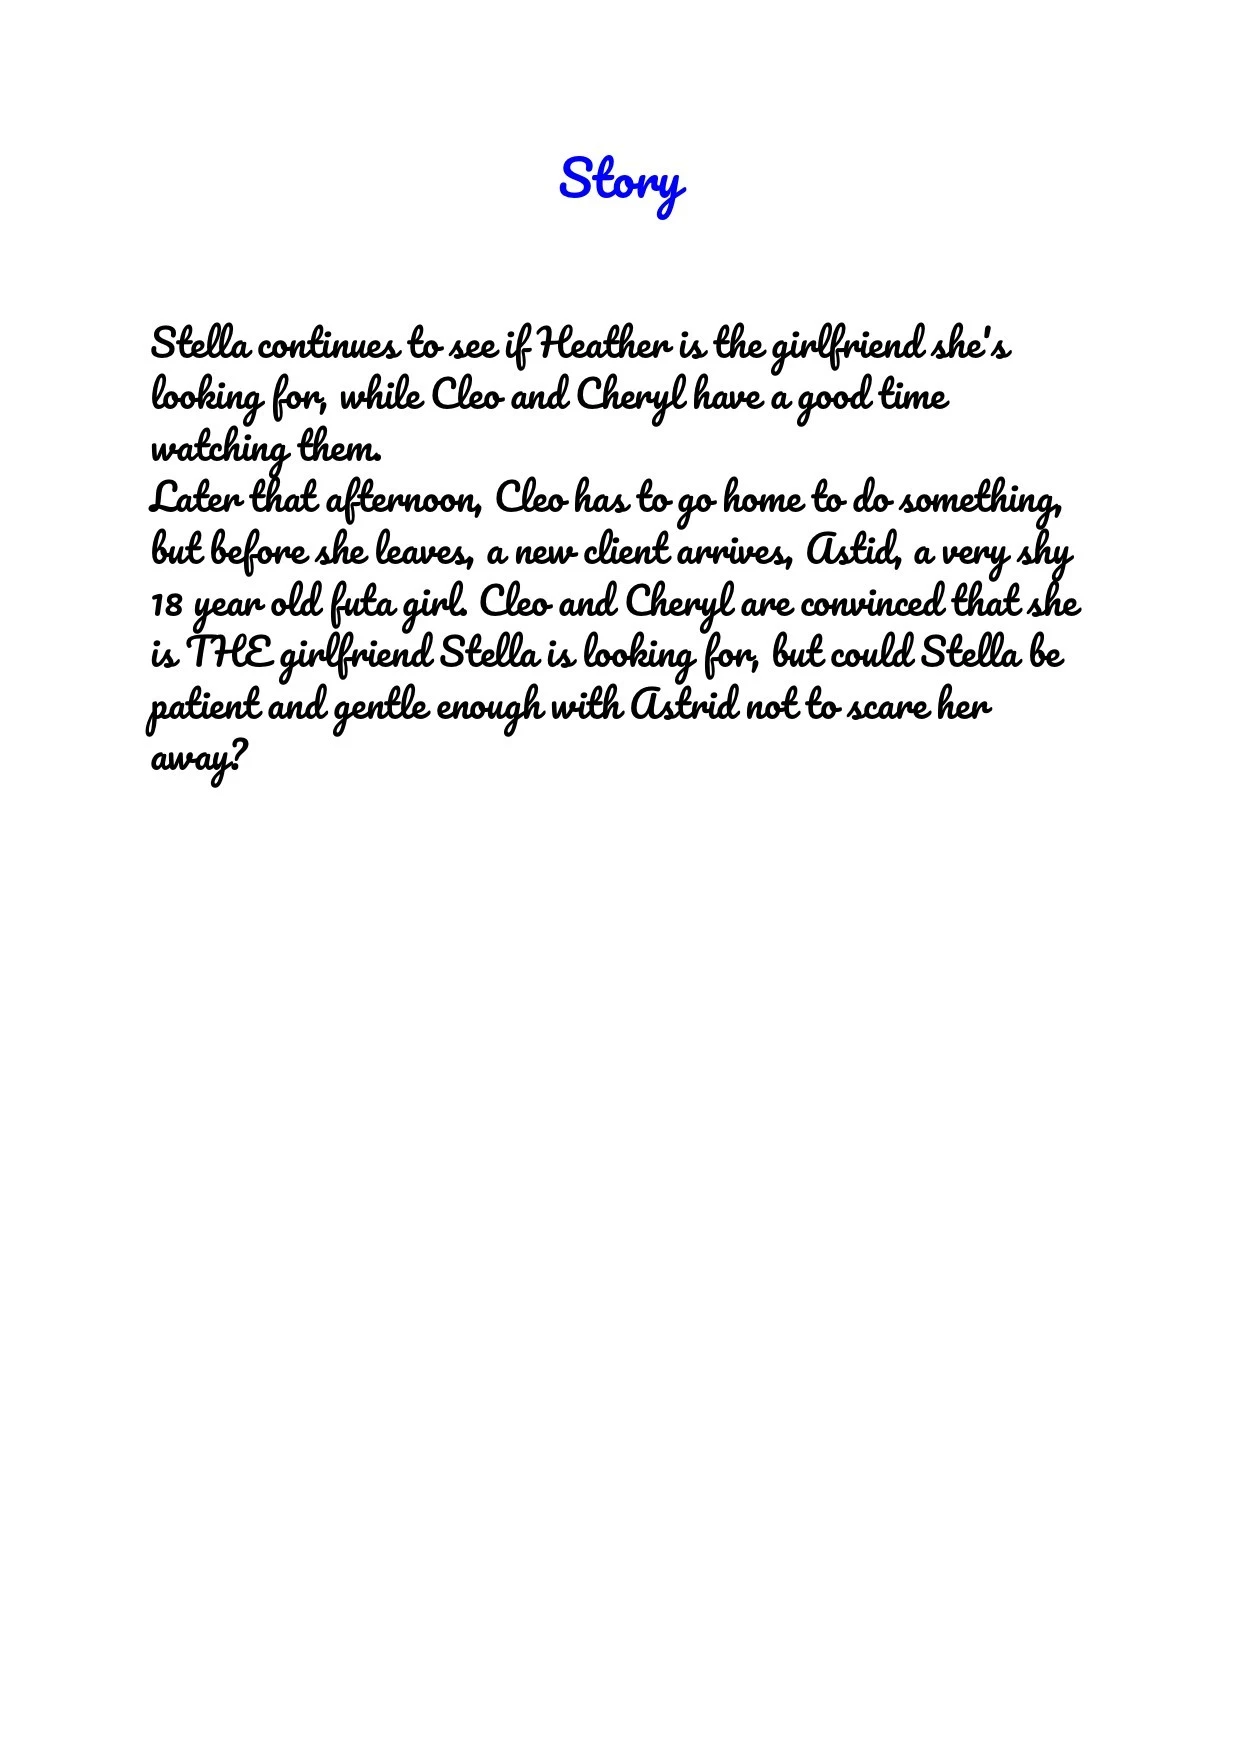 Story
Stella continues to see if Heather is the girlfriend she's
looking for, while Cleo and Cheryl have a good time
watching them.
Later that afternoon, Cleo has to go home to do something,
but before she leaves, a new client arrives, Astid, a very shy
18 year old futa girl. Cleo and Cheryl are convinced that she
is THE girlfriend Stella is looking for, but could Stella be
patient and gentle enough with Astrid not to scare her
away?